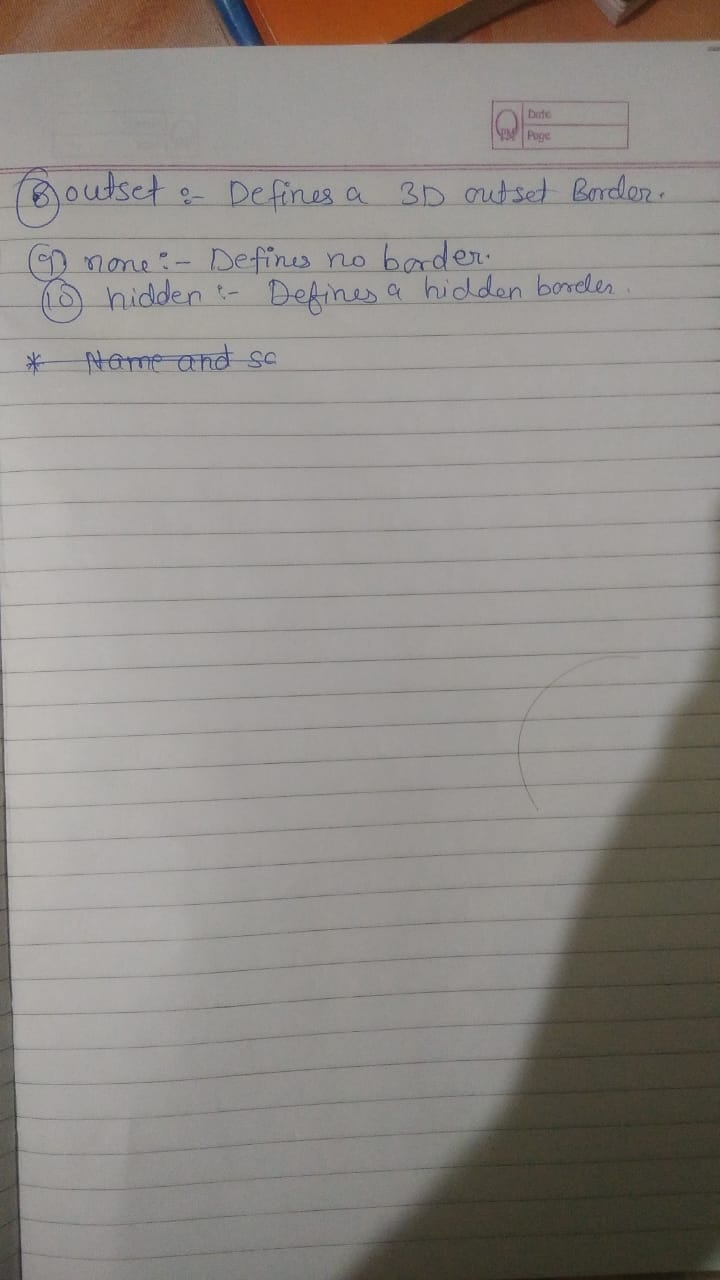 Date
Page
PM
⑧ outset :- Defines a 3D outset Border.
⑨ none :- Defines no border.
⑩ hidden :- Defines a hidden border.
* Name and sc